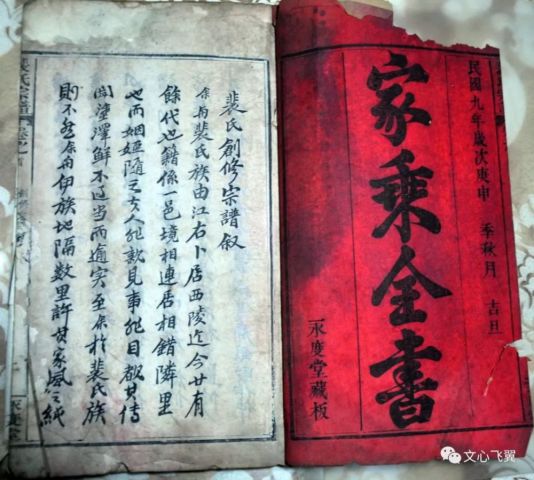 民國九年歲次庚申 季秋月 吉旦
家乘全書
永慶堂藏板
裴氏創修宗譜叙
裴氏族由江右卜居西陵迄今廿有
餘代也籍係一邑境相連居相錯隣里
也而姻婭隨之夫人非親見事非目覩其傳
聞鮮不过当而逾实至余於裴氏族
則不然余伊族地隔数里許其家風之純
裴氏宗譜 卷之首
永慶堂
文心飞翼